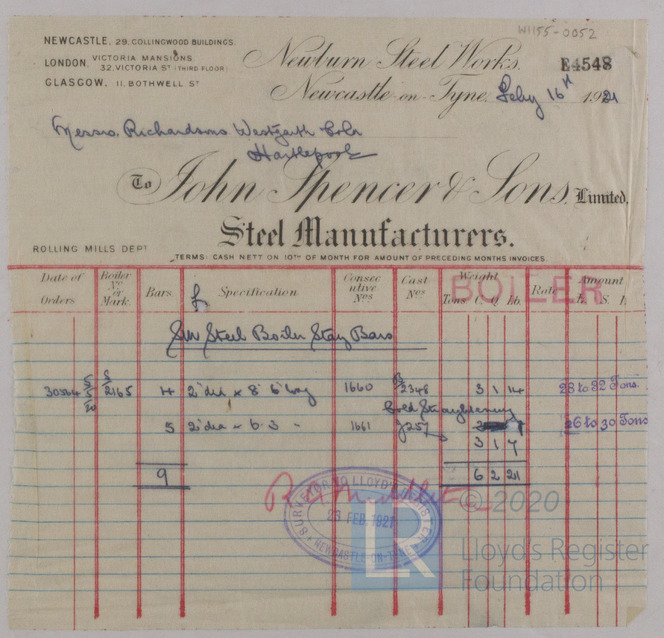 W1155-0052
NEWCASTLE, 29, COLLINGWOOD BUILDINGS.
LONDON, VICTORIA MANSIONS, 32, VICTORIA ST (THIRD FLOOR)
GLASGOW, 11, BOTHWELL ST
Newburn Steel Works,
E4548
Newcastle-on-Tyne, Feby 16th 1921
Messrs. Richardsons Westgarth & Co Ld
Hartlepool
To John Spencer & Sons, Limited,
Steel Manufacturers.
ROLLING MILLS DEPT
TERMS: CASH NETT ON 10TH OF MONTH FOR AMOUNT OF PRECEDING MONTHS INVOICES.
BOILER
Date of Orders Boiler No or Mark. Bars Specification Consecutive Nos Cast Nos Weight Tons C Q lb. Rate Amount £ S. d.
SM Steel Boiler Stay Bars
30364 5/5/20 S 2165 4 2" dia x 8' 6" long 1660 2348 3 1 14 28 to 32 Tons.
Cold Straightening
5 2" dia x 6. 3 " 1661 7257 26 to 30 Tons
3 1 7
9 6 2 21
SURVEYOR TO LLOYD'S REGISTER
23 FEB. 1921
NEWCASTLE-ON-TYNE
LR
© 2020
Lloyd's Register
Foundation